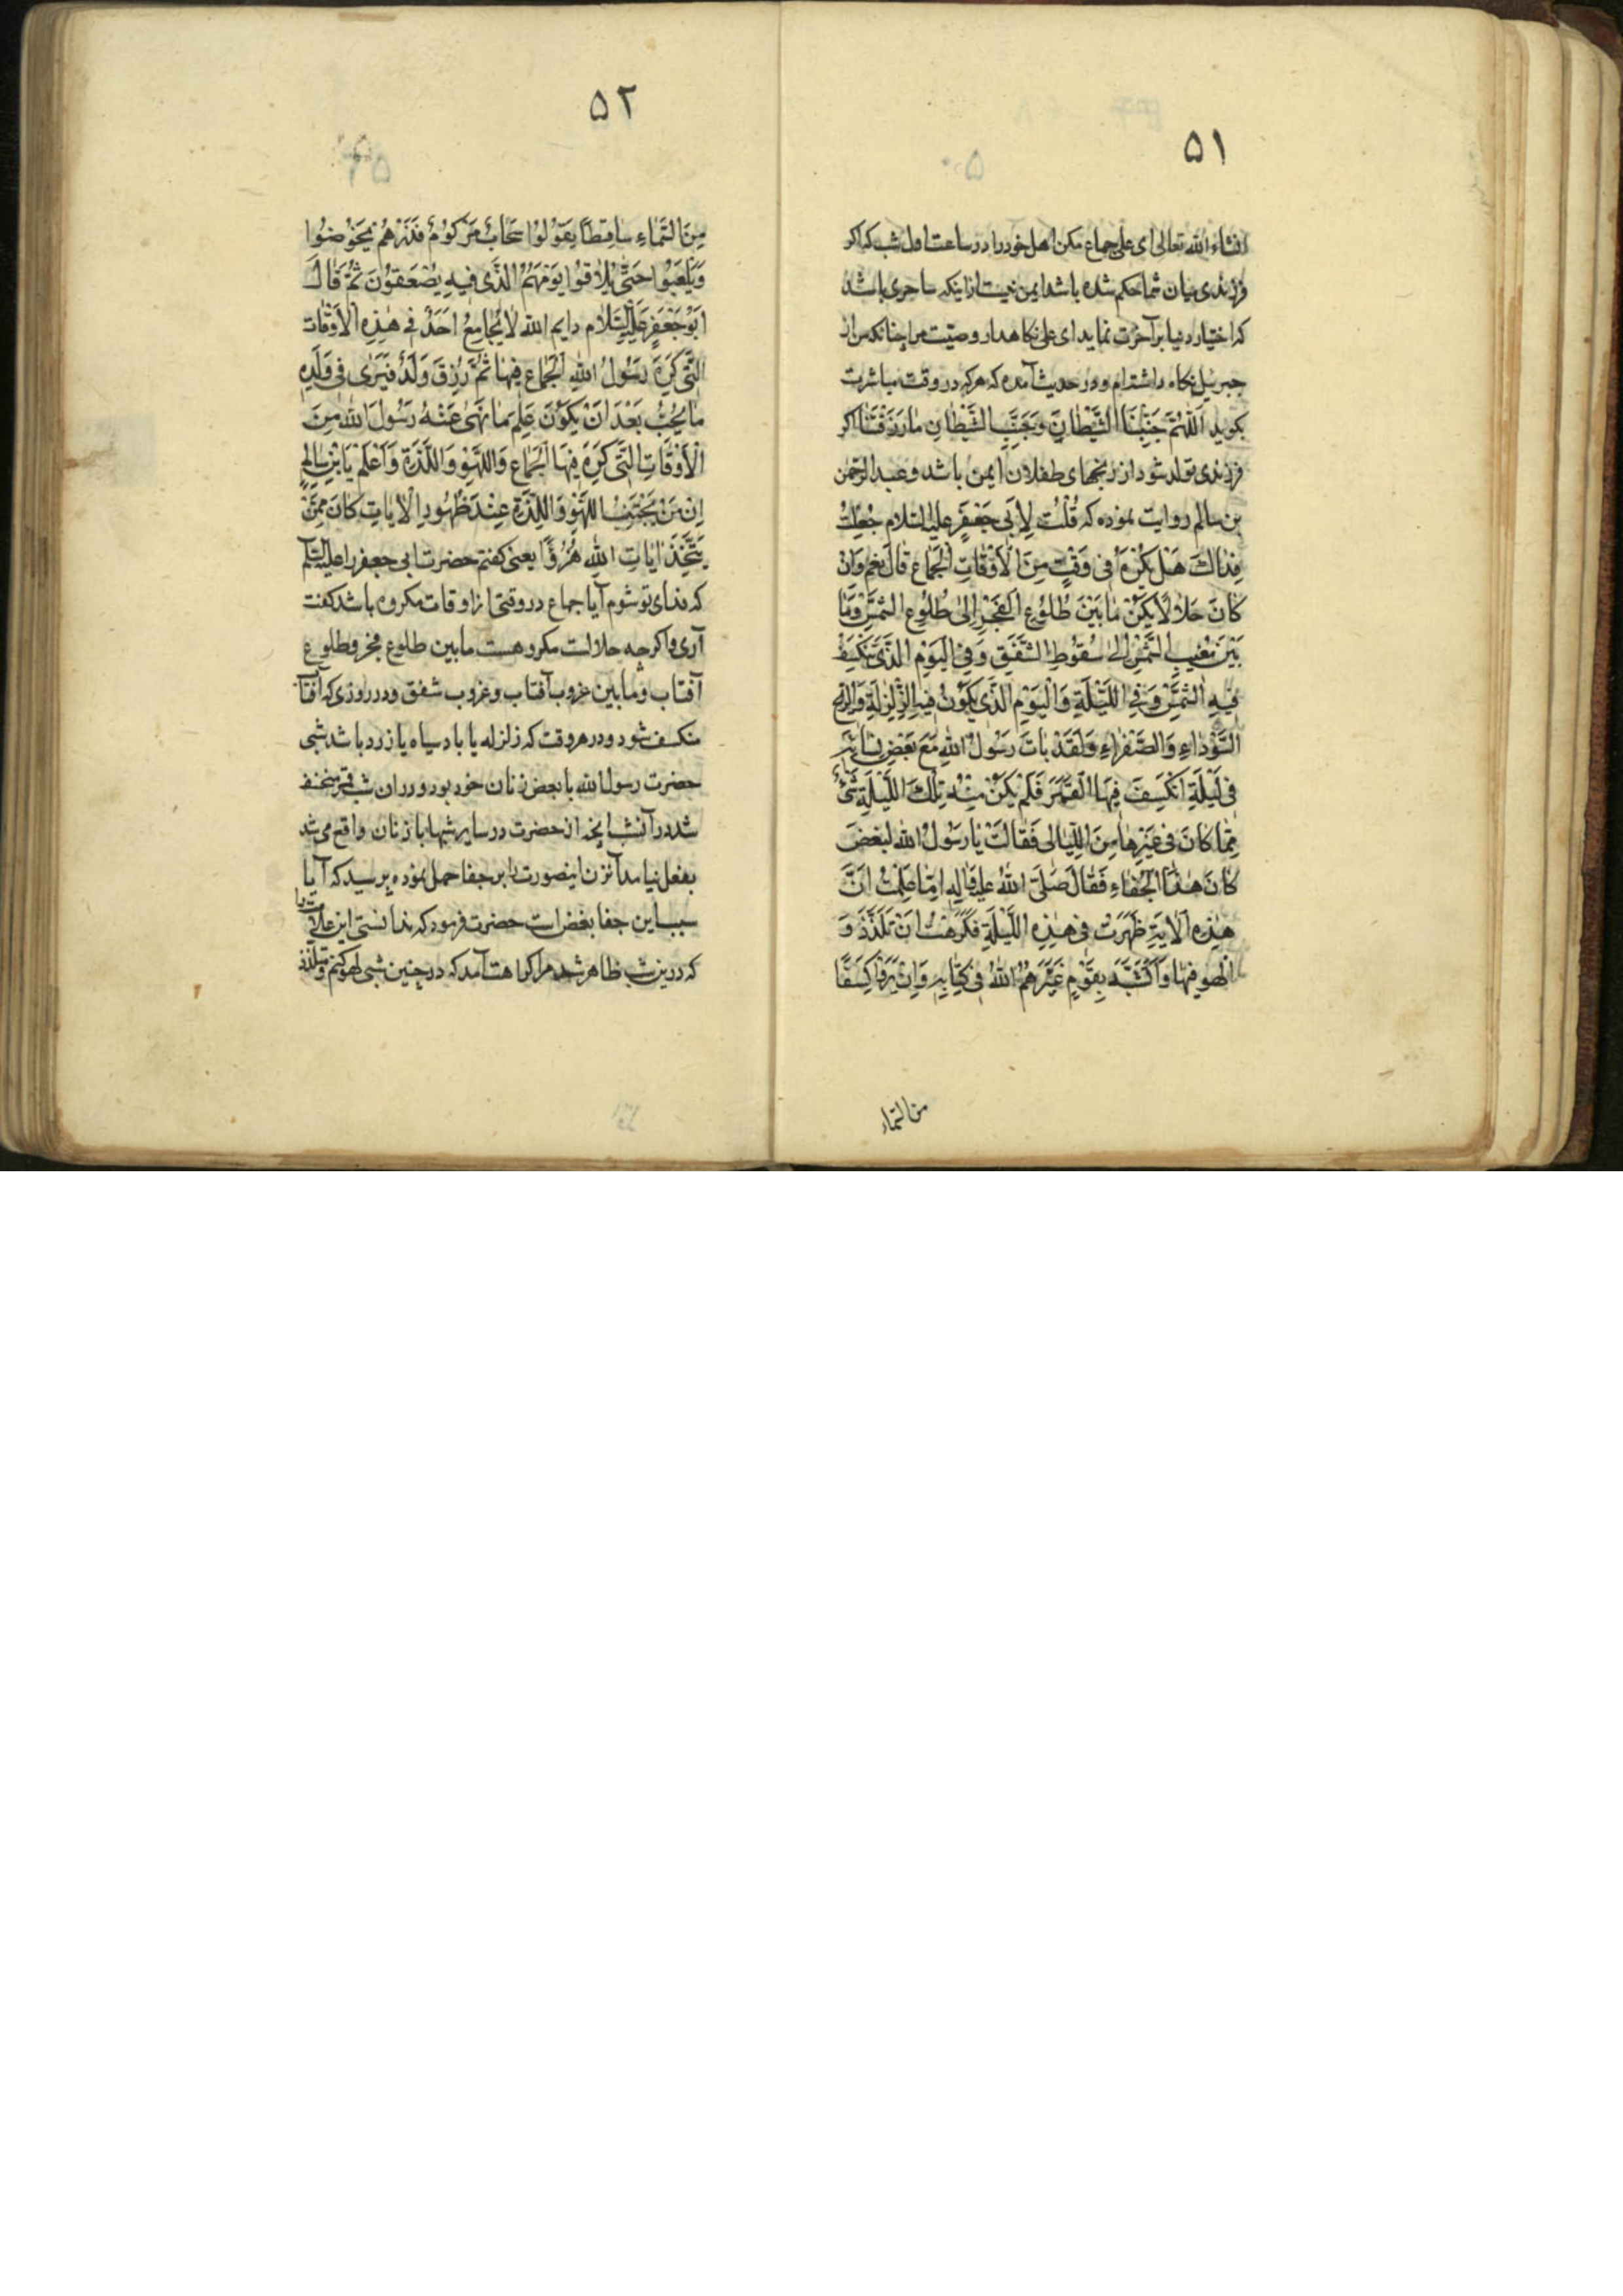 ۵۱
انشاء الله تعالی ای علی جماع مکن اهل خود را در ساعت اول شب که اکر
فرزندی میان شما حکم شده باشد ایمن نیست از اینکه ساحری باشد
که اختیار دنیا بر آخرت نماید ای علی نکاهدار وصیّت مرا چنانکه من از
جبرئیل نکاه داشته‌ام و در حدیث آمده که هرکه در وقت مباشرت
بکوید اَللّٰهُمَّ جَنِّبْنَا الشَّیْطَانَ وَجَنِّبِ الشَّیْطَانَ مٰا رَزَقْتَنَا اکر
فرزندی تولد شود از رنجهای طفلان ایمن باشد و عبد الرحمن
بن سالم روایت نموده که قُلْتُ لِاَبی جَعْفَرٍ علیه السلام جُعِلْتُ
فِدٰاكَ هَلْ یَکْرَهُ فی وَقْتٍ مِنَ الْاَوْقٰاتِ الْجِمٰاعِ قٰالَ نَعَمْ وَاِنْ
کٰانَ حَلٰالًا یَکْرَهُ مٰا بَیْنَ طُلُوُعِ الْفَجْرِ اِلیٰ طُلُوُعِ الشَّمْسِ وَمٰا
بَیْنَ مَغیبِ الشَّمْسِ اِلیٰ سُقُوطِ الشَّفَقِ وَفِی الْیَوْمِ الَّذی تَنْکَسِفُ
فیهِ الشَّمْسُ وَفِی اللَّیْلَةِ وَالْیَوْمِ الَّذی یَکُونُ فیهِ الزَّلْزَلَةِ وَالرّیحِ
السَّوْدٰاءِ وَالصَّفْرٰاءِ وَلَقَدْ بٰاتَ رَسُولُ اللهِ مَعَ بَعْضِ نِسٰائِهِ
فی لَیْلَةٍ اِنْکَسَفَ فیهَا الْقَمَرَ فَلَمْ یَکُنْ مِنْهُ تِلْكَ اللَّیْلَةِ شَیْءٌ
مِمّٰا کٰانَ فی غَیْرِهٰا مِنَ اللَّیٰالی فَقٰالَتْ یٰا رَسُولَ اللهِ لِبُغْضَ
کٰانَ هٰذَا الْجَفٰاءِ فَقٰالَ صَلَّی اللهُ علیه وَالِهِ اَمٰا عَلِمْتَ اَنَّ
هٰذِهِ الْاٰیَةِ ظَهَرَتْ فی هٰذِهِ اللَّیْلَةِ فَکَرِهْتُ اَنْ تَلَذَّذَ وَ
اَلْهو فیهٰا وَاَتَشَبَّهَ بِقَوْمٍ عَیَّرَهُمُ اللهُ فی کِتٰابِهِ وَاِنْ یَرَوْا کِسْفًا
من السماء
۵۲
مِنَ السَّمٰاءِ سٰاقِطًا یَقُوْلُوُا سَحٰابٌ مَرْکُومٌ فَذَرْهُمْ یَخُوْضُوا
وَیَلْعَبُوا حَتّیٰ یُلٰاقُوا یَوْمَهُمُ الَّذی فیهِ یُصْعَقُونَ ثُمَّ قٰالَ
اَبُوْ جَعْفَرٍ عَلَیْهِ السَّلٰام وایم الله لٰا یُجٰامِعُ اَحَدٌ فی هٰذِهِ الْاَوْقٰات
الَّتی کَرِهَ رَسُولُ اللهِ الْجِمٰاعَ فیهٰا ثُمَّ رُزِقَ وَلَدًا فَیَرٰی فی وَلَدِهِ
مٰا یُحِبُّ بَعْدَ اَنْ یَکُونَ عَلِمَ مٰا نَهیٰ عَنْهُ رَسُولَ اللهِ مِنَ
الْاَوْقٰاتِ الَّتی کَرِهَ فیهَا الْجِمٰاعَ وَاللَّهْوَ وَاللَّذَّةَ وَاَعْلَمْ یَا بْنَ سٰالِمٍ
اِن مَنْ یَجْتَنِبُ اللَّهْوَ وَاللَّذَّةَ عِنْدَ ظُهُورِ الْاٰیٰاتِ کٰانَ مِمَّنْ
یَتَّخِذَ اٰیٰاتِ اللهِ هُزُوًا یعنی کفتم حضرت ابی جعفر را علیه السلم
که فدای تو شوم آیا جماع در وقتی از اوقات مکروه باشد کفت
آری واکرچه حلالست مکروهست مابین طلوع فجر و طلوع
آفتاب و مابین غروب آفتاب و غروب شفق و در روزی که آفتاب
منکسف شود و در هر وقت که زلزله یا باد سیاه یا زرد باشد شبی
حضرت رسول الله با بعض زنان خود بود و در ان شب قمر منخسف
شد در آنشب انچه از حضرت در سایر شبها با زنان واقع می شد
بفعل نیامد آنزن اینصورت را بر جفا حمل نموده پرسید که آیا
سبب این جفا بغض است حضرت فرمود که ندانستی این علامت را
که درین شب ظاهر شد مرا کراهت آمد که در چنین شبی لهو کنم و تلذذ